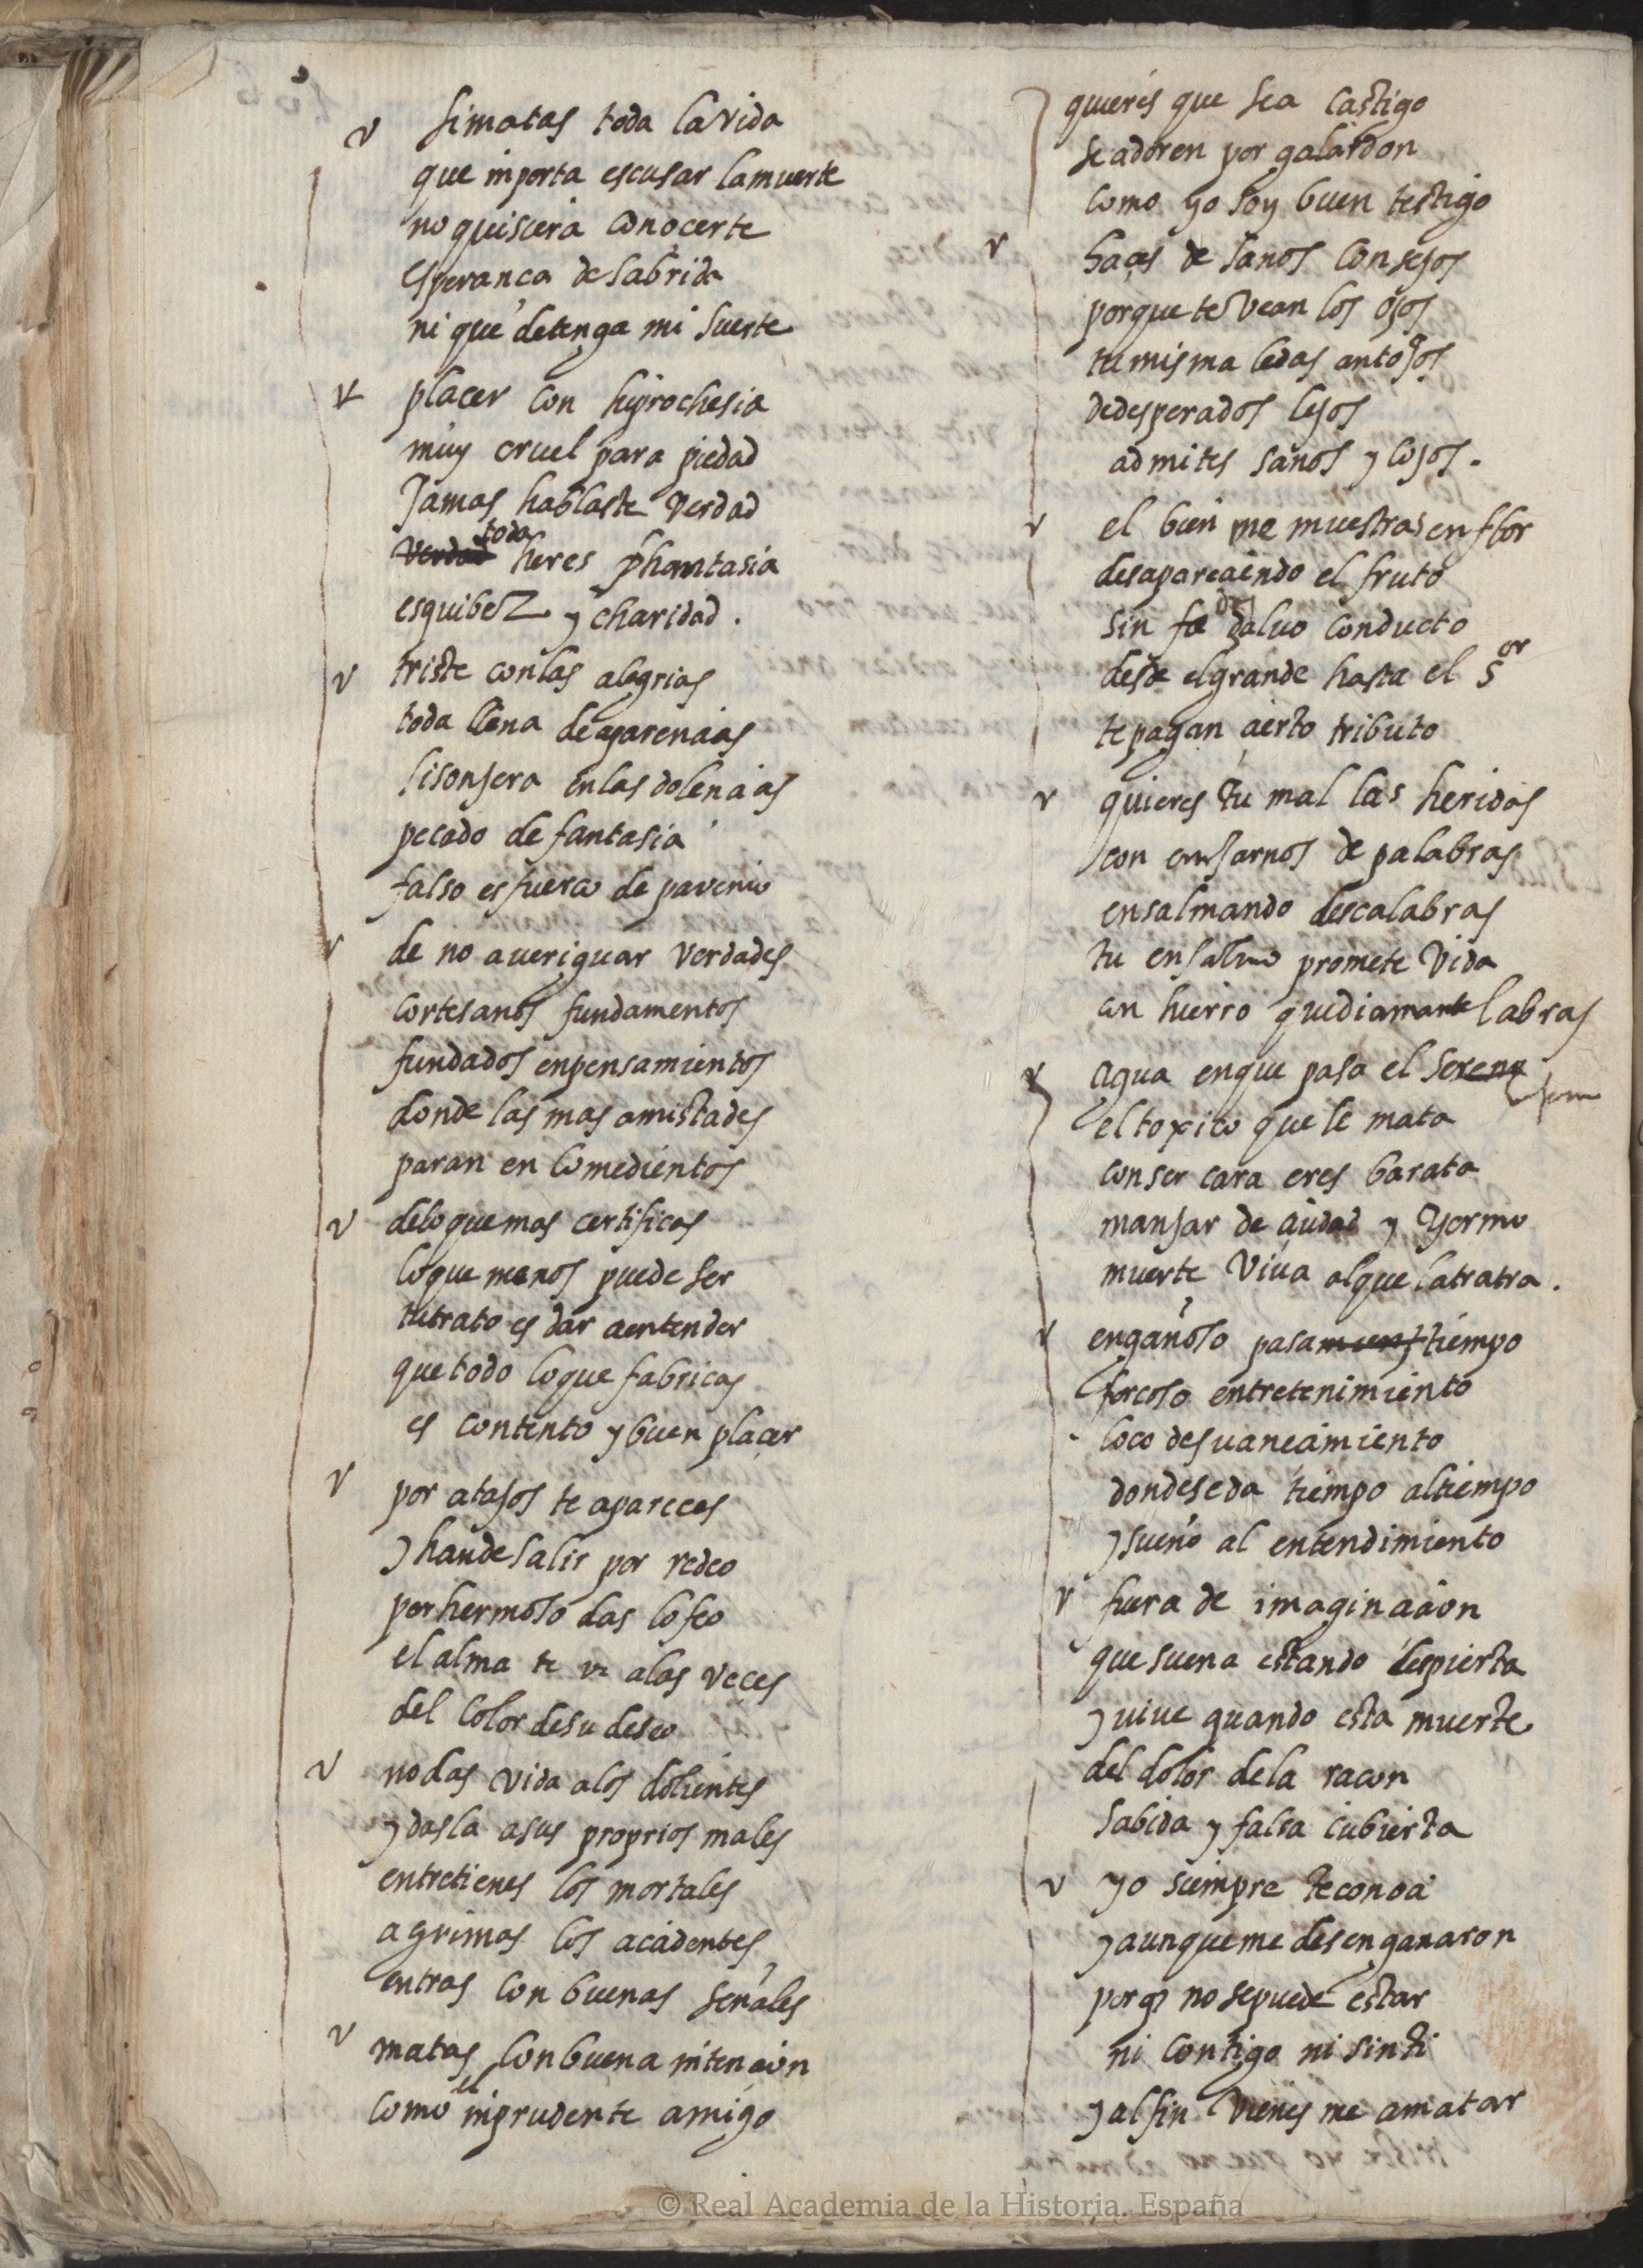 si matas toda la vida
que inporta escusar la muerte
no quisiera conocerte
esperança desabrida
ni que detenga mi suerte
placer con hiprochesia
muy cruel para piedad
Jamas hablaste verdad
verdad toda heres phantasia
esquibeZ y charidad.
triste con las alegrias
toda llena de aparencias
lisonjera en las dolencias
pecado de fantasia
falso esfuerço de
de no aueriguar verdades
cortesanos fundamentos
fundados en pensamientos
donde las mas amistades
paran en comedientos
de lo que mas certificas
lo que menos puede ser
tu trato es dar a entender
que todo lo que fabricas
es contento y buen placer
por atajos te apareces
y hande salir por rodeo
por hermoso das lo feo
el alma te ve a las veces
del color de su deseo
no das vida a los dolientes
y dasla a sus proprios males
entretienes los mortales
a grimas los acidentes
entras con buenas señales
matas con buena intencion
como el inprudente amigo
quieres que sea castigo
se adoren por galardon
como yo soy buen testigo
haces de sanos consejos
porque te vean los ojos
tu misma le das antojos
de desperados lejos
admites sanos y cojos.
el bien me muestras en flor
desapareciendo el fruto
sin fe do saluo conducto
desde el grande hasta el sor
te pagan cierto tributo
quieres tu mal las heridas
con de palabras
ensalmando descalabras
tu ensalmo promete vida
con hierro que diamante labras
agua en que pasa el sereno
el toxico que le mata
con ser cara eres barata
manjar de ciudad y yermo
muerte viua al que la tratra.
engañoso pasa tiempo
forcoso entretenimiento
loco desuaneciamiento
donde se da tiempo al tiempo
y sueño al entendimiento
fuera de imaginacion
que suena estando despierta
y uiue quando esta muerte
del dolor de la raçon
sabida y falsa cubierta
yo siempre te conoci
y aunque me desengañaron
porq no se puede estar
ni contigo ni sin ti
y al fin vienes me a matar
© Real Academia de la Historia. España